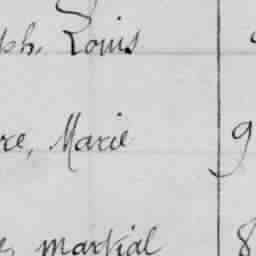 ph, Louis
re, Marie 9
e, martial 8